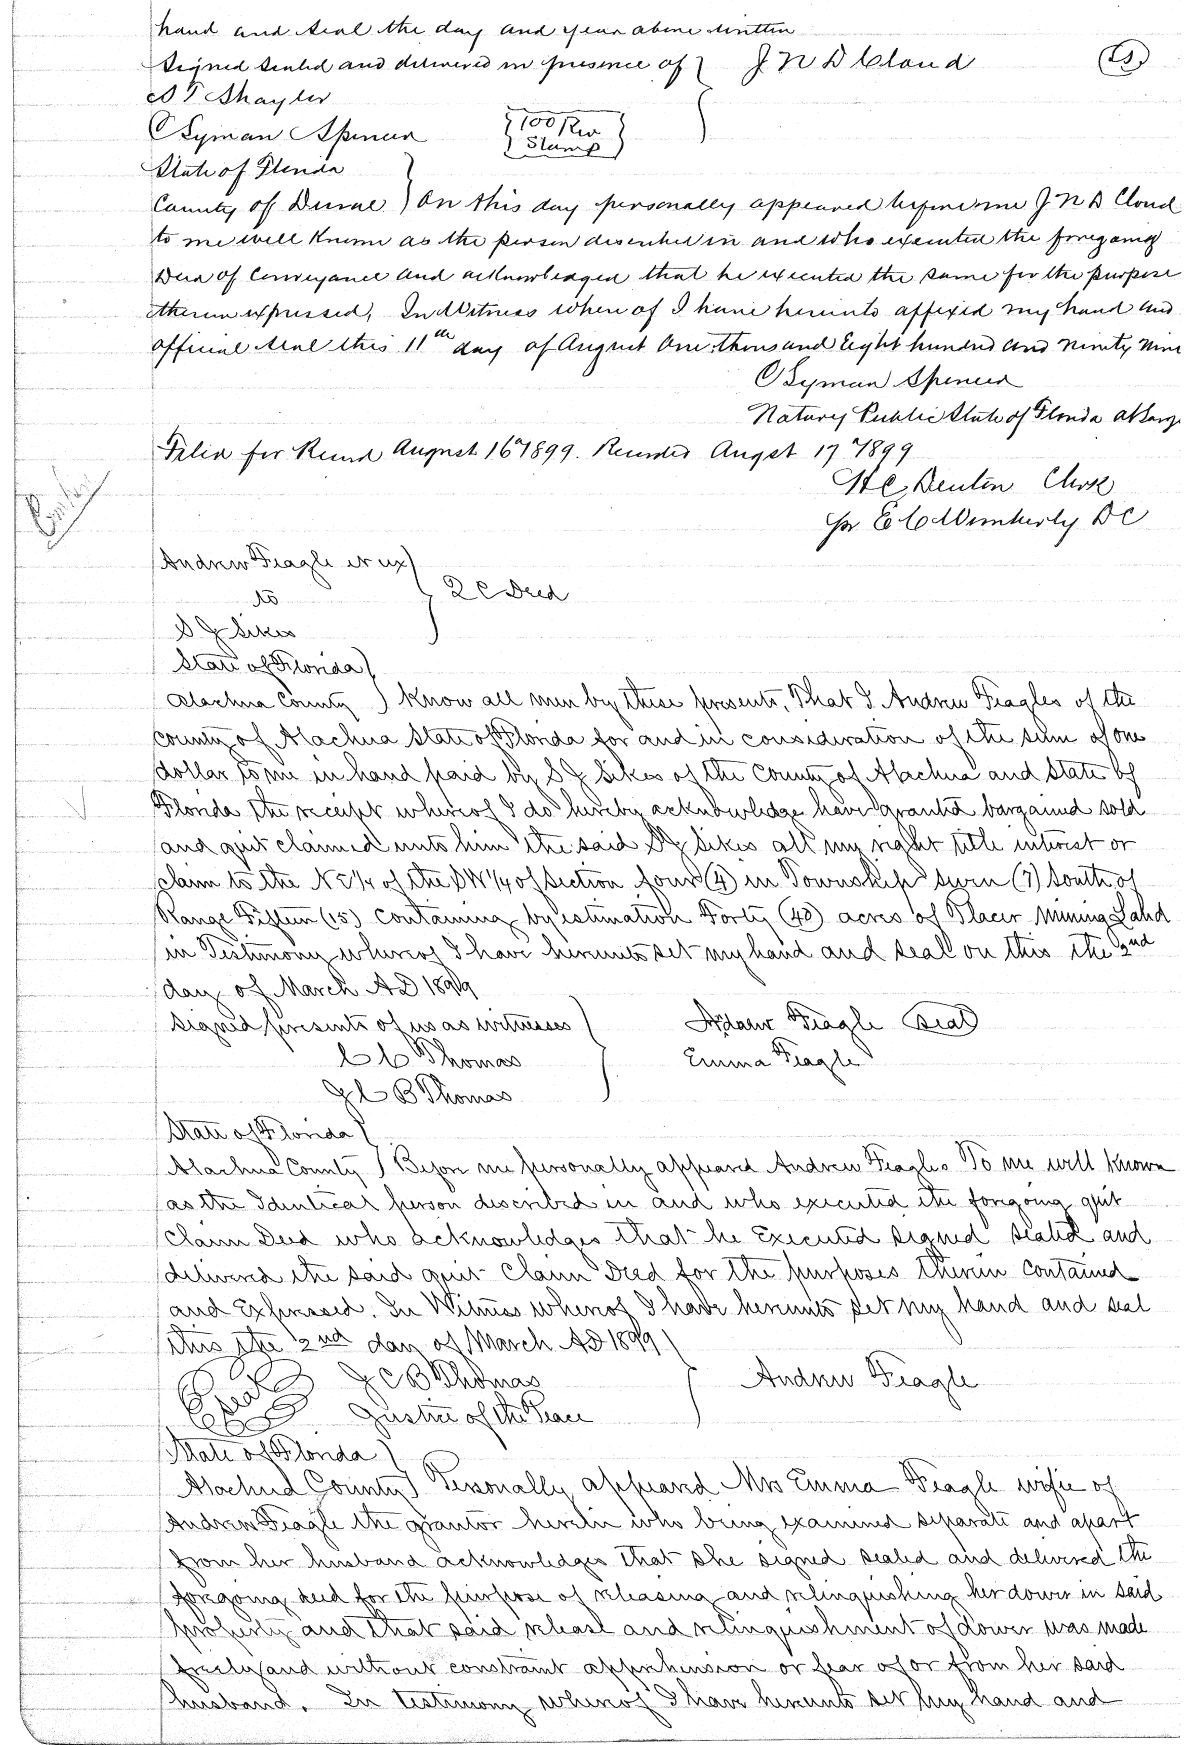 hand and seal the day and year above written
Signed sealed and delivered in presence of } J N D Cloud (LS)
S T Shayler
C Lyman Spencer {100 Rev
Stamp}
State of Florida
County of Duval } On this day personally appeared before me J N D Cloud
to me well known as the person described in and who executed the foregoing
Deed of Conveyance and acknowledged that he executed the same for the purpose
therein expressed, In Witness where of I have hereunto affixed my hand and
official seal this 11th day of August One thousand Eight hundred and ninety nine
C Lyman Spencer
Notary Public State of Florida at Large
Filed for Record August 16" 1899. Recorded Augst 17" 1899
H C Denton Clerk
pr E C Wimberly D C
Andrew Feagle et ux }
to } Q C Deed
S J Sikes
State of Florida }
Alachua County } Know all men by these presents, That I Andrew Feagles of the
County of Alachua State of Florida for and in consideration of the sum of one
dollar to me in hand paid by S J Sikes of the County of Alachua and State of
Florida the receipt whereof I do hereby acknowledge have granted bargained sold
and quit claimed unto him the said S J Sikes all my right title interest or
claim to the N E 1/4 of the S W 1/4 of Section four (4) in Township seven (7) South of
Range Fifteen (15) Containing by estimation Forty (40) acres of Placer Mining Land
in Testimony whereof I have hereunto set my hand and seal on this the 2nd
day of March AD 1899
Signed presents of us as witnesses } Adanw Feagle (Seal)
C C Thomas } Emma Feagle
J C B Thomas
State of Florida }
Alachua County } Before me personally appeared Andrew Feagle. To me well known
as the Identical person described in and who executed the foregoing quit
Claim Deed who acknowledges that he Executed signed sealed and
delivered the said quit Claim Deed for the purposes therein contained
and Expressed. In Witness whereof I have hereunto set my hand and seal
this the 2nd day of March AD 1899 }
(Seal) J C B Thomas } Andrew Feagle
Justice of the Peace
State of Florida }
Alachua County } Personally appeared Mrs Emma Feagle wife of
Andrew Feagle the grantor herein who being examined separate and apart
from her husband acknowledges that she signed sealed and delivered the
foregoing deed for the purpose of releasing and relinquishing her dower in said
property and that said release and relinquishment of dower was made
freely and without constraint apprehension or fear of or from her said
husband. In testimony whereof I have hereunto set my hand and